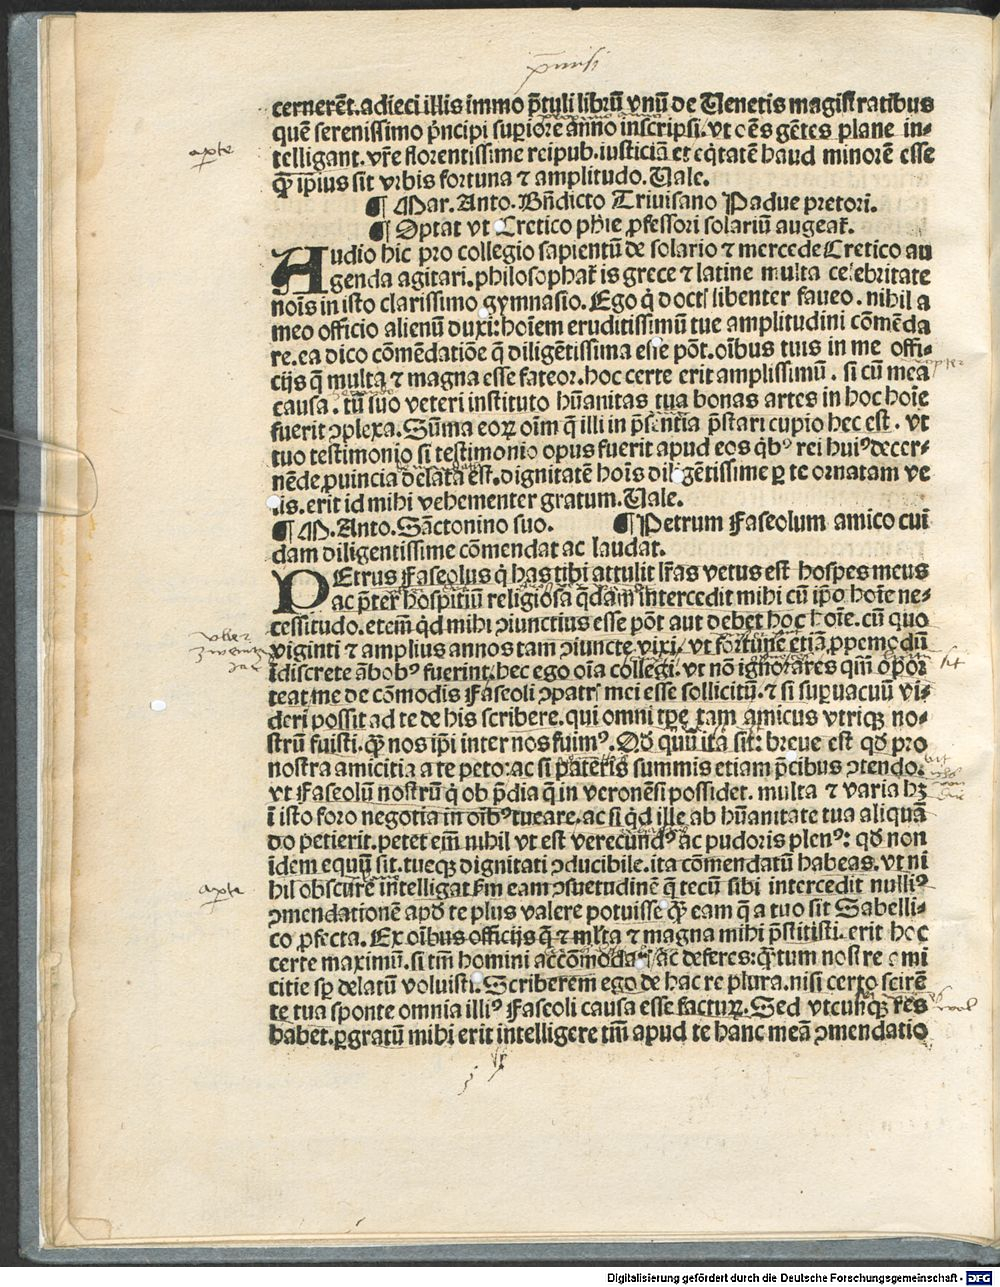 p̄misi
cernerēt. adieci illis immo p̄tuli librū vnū de Uenetis magistratibus
quē serenissimo p̄ncipi supiore anno inscripsi. vt oēs gētes plane in⸗
apte
telligant. vr̄e florentissime reipub. iusticiā et eq̄tatē haud minorē esse
q̄ꝫ ipius sit vrbis fortuna ⁊ amplitudo. Uale.
¶ Mar. Anto. Bn̄dicto Triuisano Padue pretori.
¶ Optat vt Cretico phie ꝓfessori solariū augeat̄.
Audio hic pro collegio sapientū de solario ⁊ mercede Cretico au
genda agitari. philosophat̄ is grece ⁊ latine multa celebritate
nois in isto clarissimo gymnasio. Ego q̇ doct[is] libenter faueo. nihil a
meo officio alienū duxi: hoīem eruditissimū tue amplitudini cōmēda
re. ea dico cōmēdatiōe q̄ diligētissima esse pōt. oībus tuis in me offi⸗
cijs q̄ multa ⁊ magna esse fateor. hoc certe erit amplissimū. si cū mea
causa. tū suo veteri instituto hūanitas tua bonas artes in hoc hoīe
fuerit ↄplexa. Sūma eoꝝ oīm q̄ illi in p̄sentia p̄stari cupio hec est. vt
tuo testimonio si testimonio opus fuerit apud eos q̇bꝰ rei huiꝰ decer⸗
nēde ꝓuincia delata est. dignitatē hois diligētissime ꝑ te ornatam ve
lis. erit id mihi vehementer gratum. Uale.
¶ M. Anto. Sāctonino suo. ¶ Petrum Faseolum amico cui
dam diligentissime cōmendat ac laudat.
PEtrus Faseolus q̇ has tibi attulit lr̄as vetus est hospes meus
ac p̄ter hospitiū religiosa q̄dam intercedit mihi cū ip̄o hoīe ne⸗
cessitudo. etem̄ qd̄ mihi ↄiunctius esse pōt aut debet hoc hoīe. cū quo
viginti ⁊ amplius annos tam ↄiuncte vixi, vt fortune etiā ꝓpemodū
īdiscrete ābobꝰ fuerint. hec ego oīa collegi. vt nō ignorares qm̄ opor
sit
teat me de cōmodis Faseoli ↄpatris mei esse sollicitū. ⁊ si supuacuū vi⸗
deri possit ad te de his scribere. qui omni tp̄e tam amicus vtriqꝫ no⸗
strū fuisti. q̄ꝫ nos ip̄i inter nos fuimꝰ. Qd̄ quū ita sit: breue est qd̄ pro
nostra amicitia a te peto: ac si pateris summis etiam p̄cibus ↄtendo.
vt Faseolū nostrū q̇ ob p̄dia q̄ in veronēsi possidet. multa ⁊ varia hꝫ
ī isto foro negotia in oībꝰ tueare. ac si q̇d ille ab hūanitate tua aliquā
do petierit. petet em̄ nihil vt est verecundꝰ ac pudoris plenꝰ: qd̄ non
idem equū sit. tueqꝫ dignitati ↄducibile. ita cōmendatū habeas. vt ni
apte
hil obscure intelligat fm̄ eam ↄsuetudinē q̄ tecū sibi intercedit nulliꝰ
ↄmendationē apd̄ te plus valere potuisse q̄ꝫ eam q̄ a tuo sit Sabelli⸗
co ꝓfecta. Ex oībus officijs q̄ ⁊ mlta ⁊ magna mihi p̄stitisti. erit hoc
certe maximū. si tm̄ homini accōmodatꝰ ac deferes: q̄tum nostre ami
citie sꝑ delatū voluisti. Scriberem ego de hac re plura. nisi certo scirē
te tua sponte omnia illiꝰ Faseoli causa esse facturꝝ. Sed vtcūqꝫ res
habet. ꝑgratū mihi erit intelligere tm̄ apud te hanc meā ↄmendatio
Digitalisierung gefördert durch die Deutsche Forschungsgemeinschaft - DFG